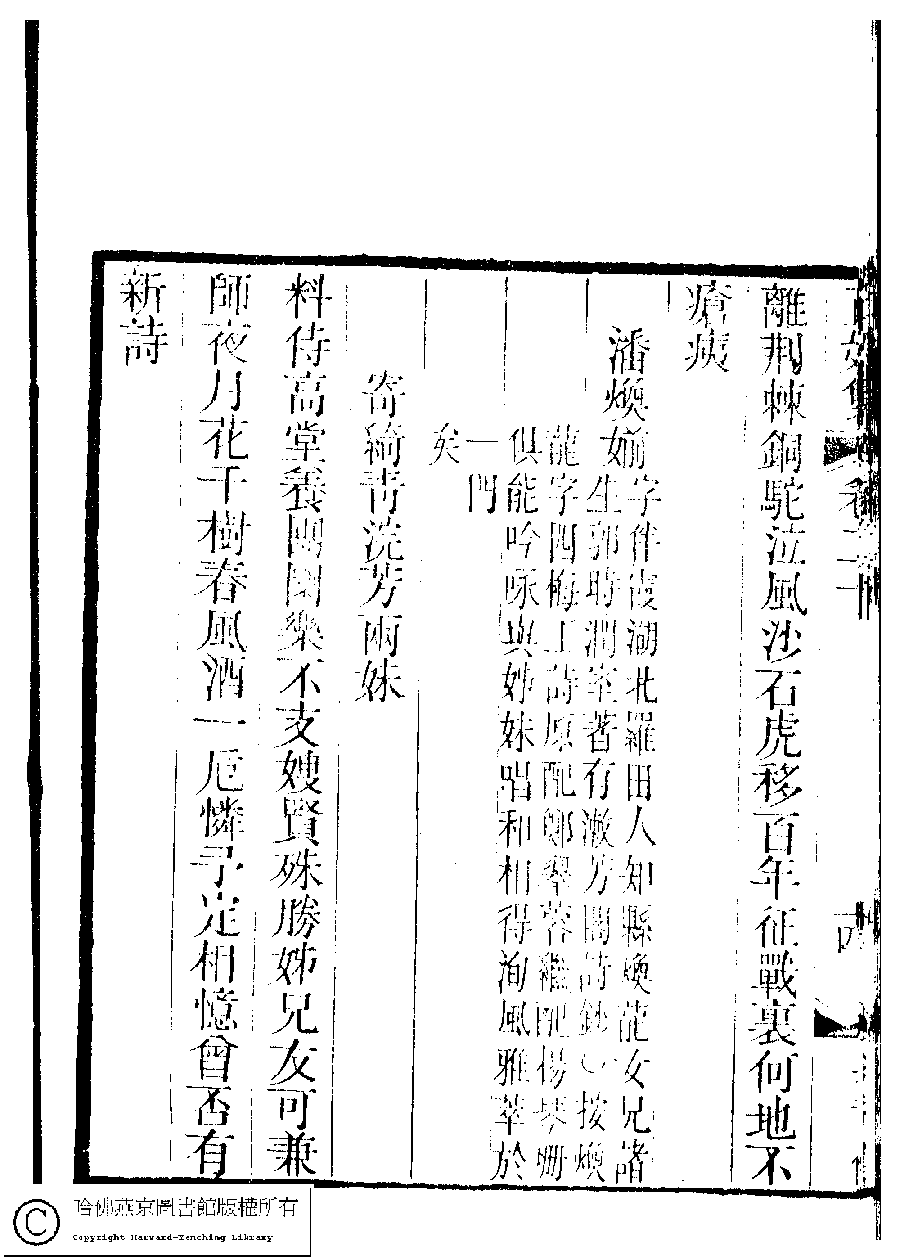 離荆棘銅駝泣風沙石虎移百年征戰裏何地不
瘡痍
潘煥媊
字伴霞湖北羅田人知縣煥龍女兄諸
生郭時潤室著有漱芳閣詩鈔 按煥
龍字四梅工詩原配鄭舉蓉繼配楊琹珊
俱能吟咏與姊妹唱和相得洵風雅萃於
一門
矣
寄綺青浣芳兩妹
料侍高堂養團圞樂不支嫂賢殊勝姊兄友可兼
師夜月花千樹春風酒一巵憐予定相憶曾否有
新詩
哈佛燕京圖書館版權所有
Copyright Harvard-Yenching Library